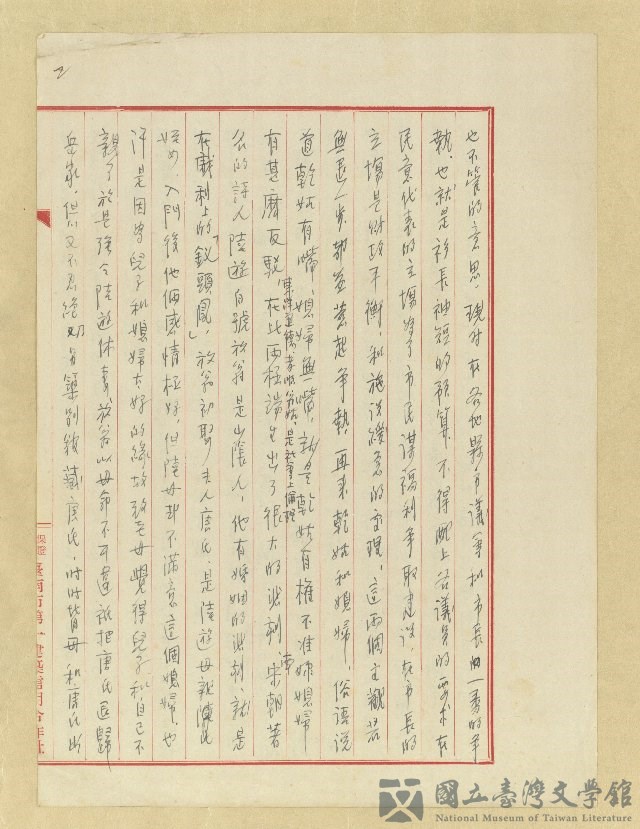 2
也不管的意思，現時在各地縣市議會和市長的一番的爭
執，也就是衫長袖短的預算，不得配上各議員的要求在
民意代表的立場為了市民謀福利爭取建設，在市長的
立場是財政平衡，和施設緩急的處理，這兩個主觀若
無退一步都並惹起爭執，再來乾姑和媳婦，俗語說
道乾姑有嘴，媳婦無嘴，就是乾姑有權不准姉媳婦
有甚麼反駁，在此兩極端生出了很大的諷刺，南宋朝著
東洋道德孝順翁姑，是就掌上倫理
名的詩人陸遊自號放翁是山陰人，他有婚姻的諷刺，就是
在戲剧上的「釵頭鳳」，放翁初娶夫人唐氏，是陸遊母親陳氏
姪女，入門後他倆感情極好，但陸母却不滿意這個媳婦，也
許是因為兒子和媳婦太好的緣故致至母覺得兒子和自己不
親了於是強令陸遊休妻放翁以母命不可違祇把唐氏送歸
岳家，但又不忍絕切另築別館藏唐氏，時時背母和唐氏出
保證臺南市第一建築信用合作社
國立臺灣文學館
National Museum of Taiwan Literature